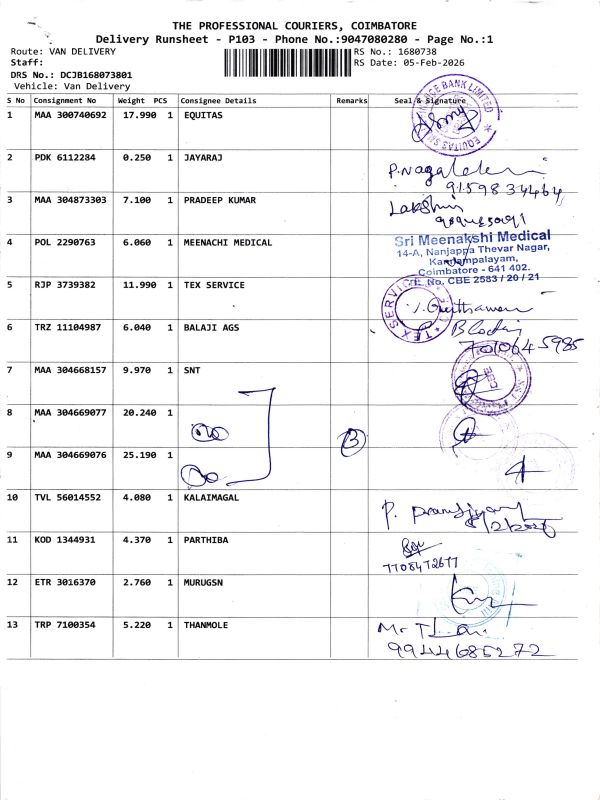 THE PROFESSIONAL COURIERS, COIMBATORE
Delivery Runsheet - P103 - Phone No.:9047080280 - Page No.:1
Route: VAN DELIVERY RS No.: 1680738
Staff: RS Date: 05-Feb-2026
DRS No.: DCJB168073801
Vehicle: Van Delivery
S No Consignment No Weight PCS Consignee Details Remarks Seal & Signature
1 MAA 300740692 17.990 1 EQUITAS
2 PDK 6112284 0.250 1 JAYARAJ
9159834464
3 MAA 304873303 7.100 1 PRADEEP KUMAR Lakshmi
4 POL 2290763 6.060 1 MEENACHI MEDICAL Sri Meenakshi Medical
14-A, Nanjappa Thevar Nagar,
Coimbatore - 641 402.
No. CBE 2583 / 20 / 21
5 RJP 3739382 11.990 1 TEX SERVICE TEX SERVICE
6 TRZ 11104987 6.040 1 BALAJI AGS
7010645985
7 MAA 304668157 9.970 1 SNT
8 MAA 304669077 20.240 1
3
9 MAA 304669076 25.190 1
10 TVL 56014552 4.080 1 KALAIMAGAL
11 KOD 1344931 4.370 1 PARTHIBA
7708472677
12 ETR 3016370 2.760 1 MURUGSN
13 TRP 7100354 5.220 1 THANMOLE
9944685272